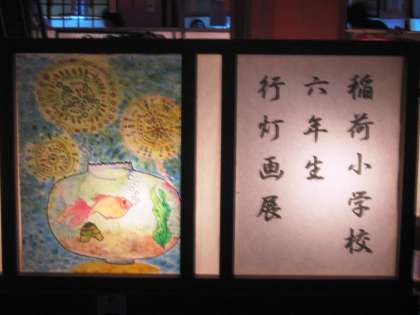 稲荷小学校
六年生
行灯画展